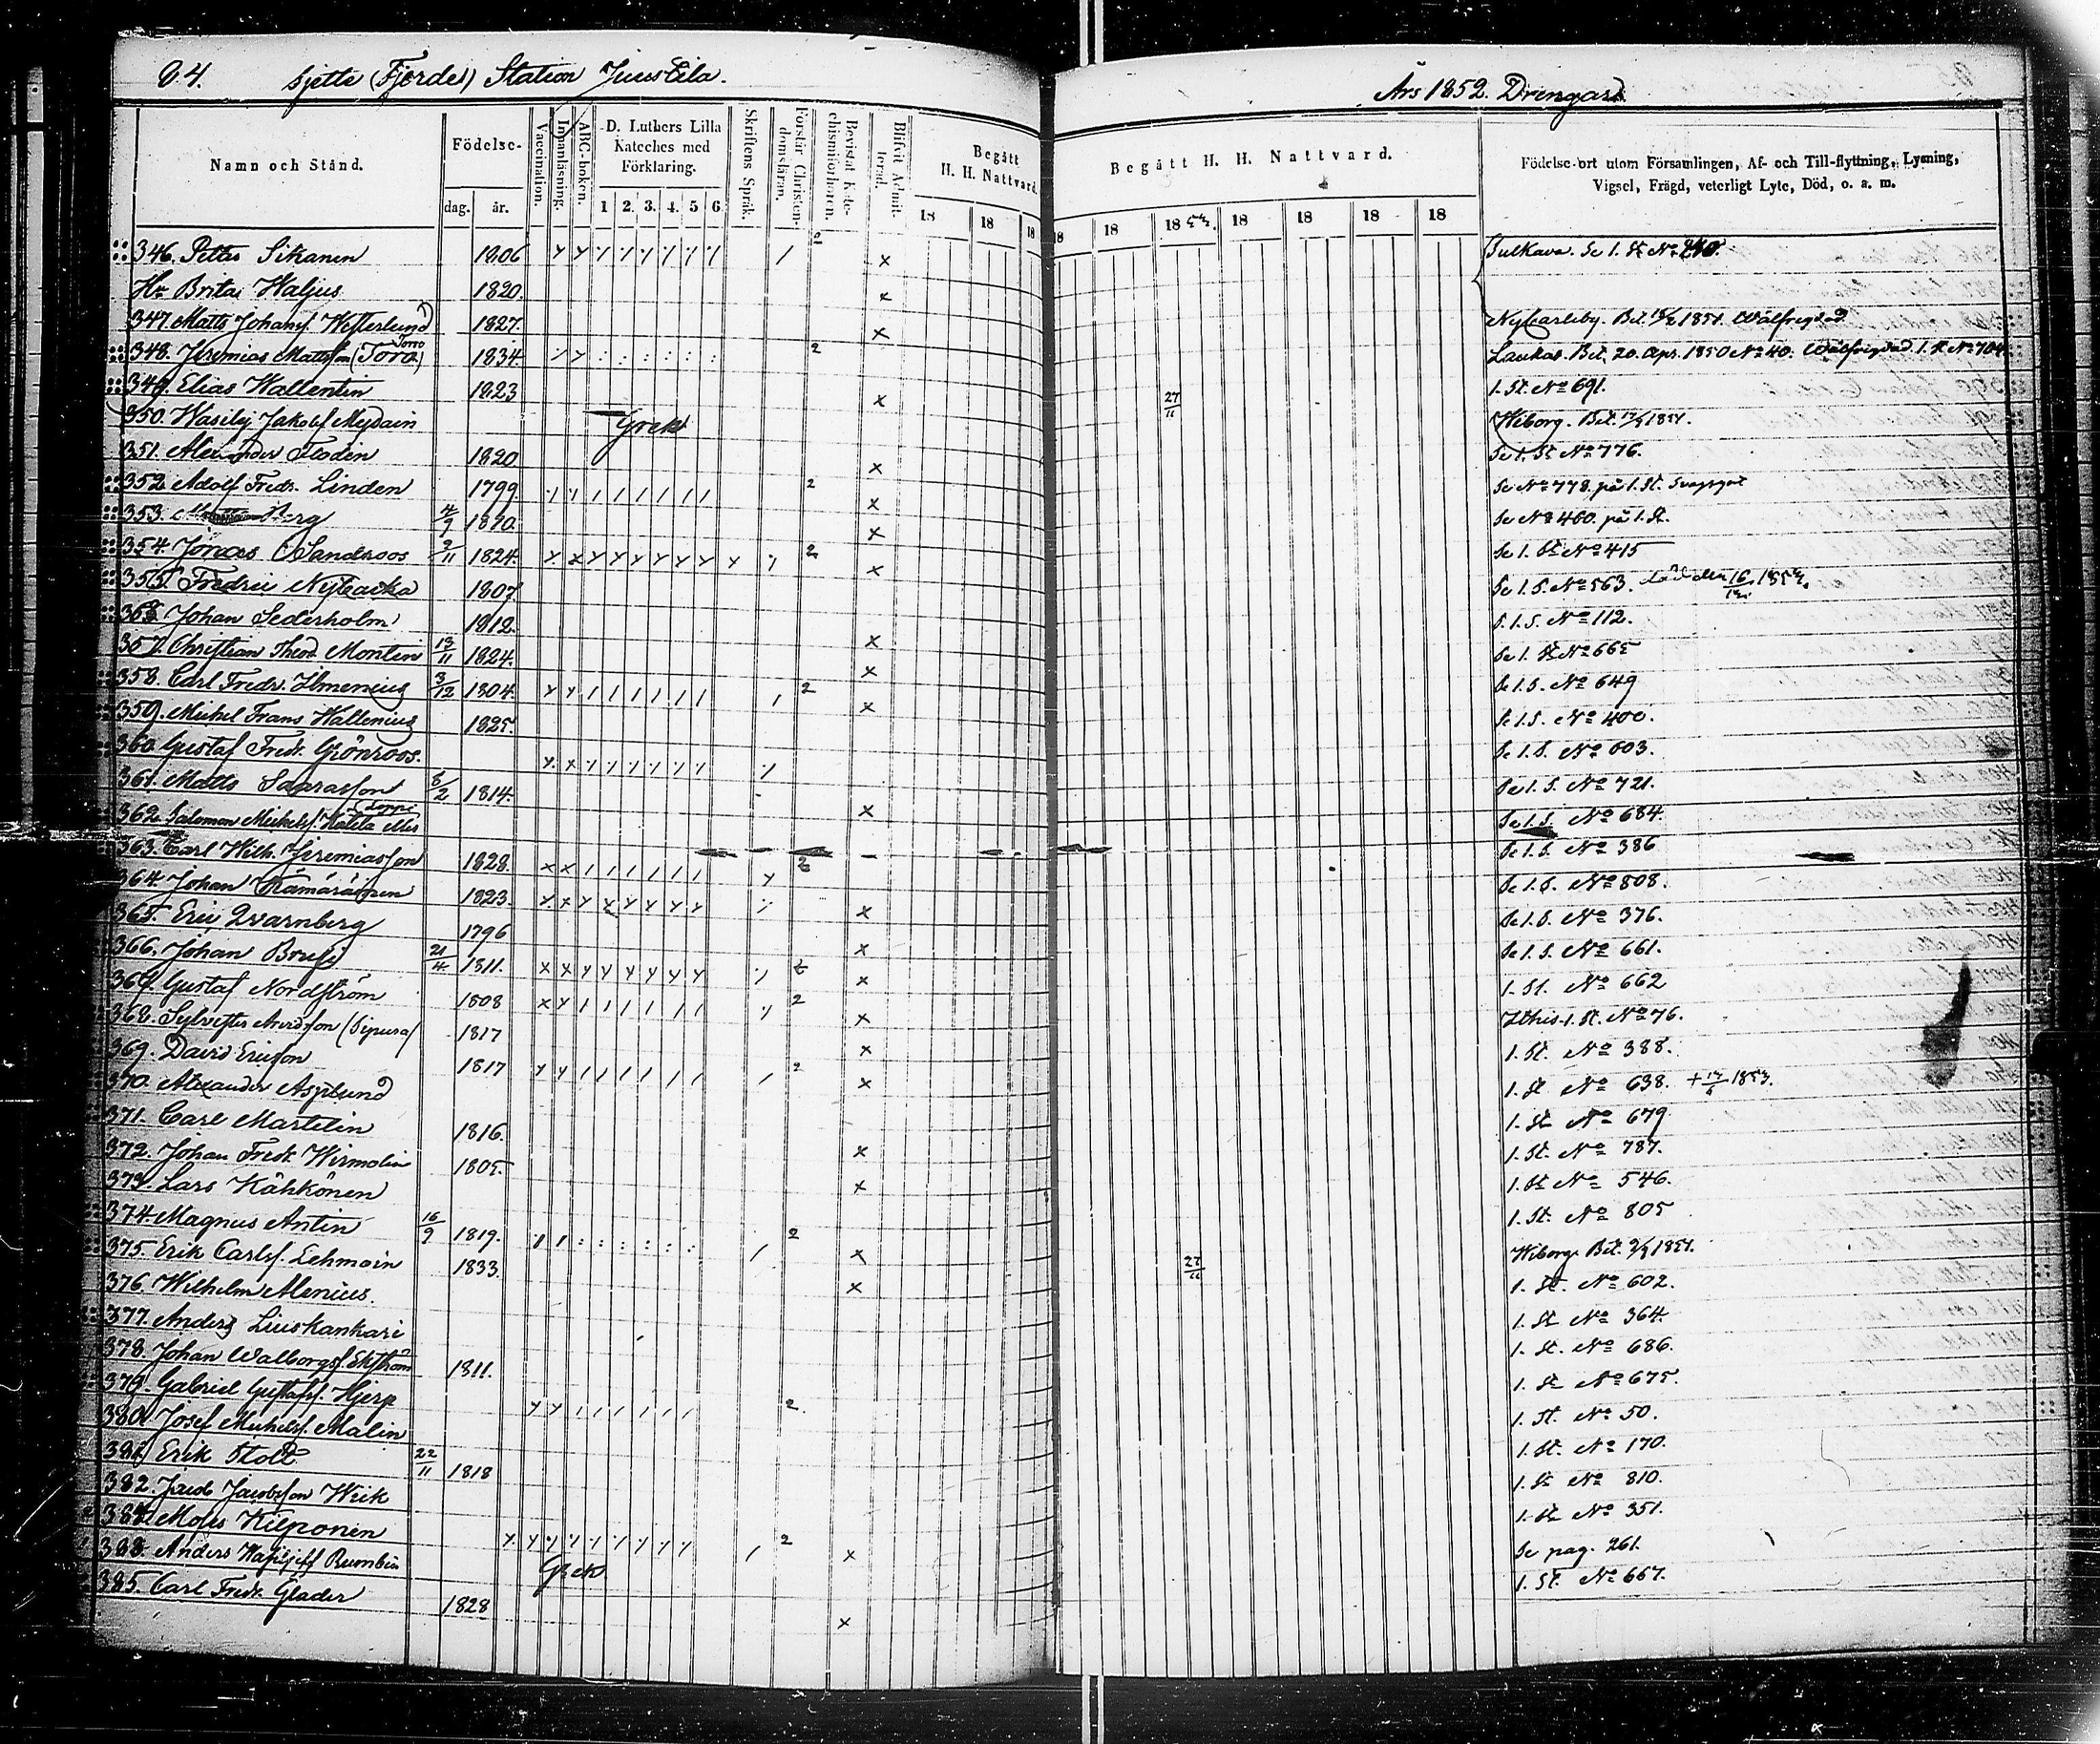 84. Sjette (Fjerde) Station Juustila.
Års 1852. Drengar.
Namn och Stånd.
Födelse-
dag. år.
Vaccination.
Innanläsning.
ABC-boken.
D. Luthers Lilla Kateches med Förklaring.
1 2. 3. 4. 5 6
Skriftens Språk.
Förstår Christendomsläran.
Bevistat Katechismiförhören.
Blifvit Admitterad.
Begått H. H. Nattvard.
18 18 18
Begått H. H. Nattvard.
18 18 18 18 18 18 18
Födelse-ort utom Församlingen, Af- och Till-flyttning, Lysning, Vigsel, Frägd, veterligt Lyte, Död, o. a. m.
346. Petter Sikanen 1806 2 Sulkava. Se 1. St No 240.
Hu Brita Haljus 1820.
347. Matts Johansf. Westerlund 1827. Nycarleby. Bet. 1851. Wälfregdad
348. Jeremias Mattsson (Torra) Torro 1834. 2 Laukas. Bet. 20. Apr. 1850 No 40. Wälfregdad. 1. St No 704.
349. Elias Wallentin 1823 27/11 1. St. No 691.
350. Wasilij Jakobsf Grek Wiborg. Bet. 1851.
351. Alexander Flodin 1820 Se 1. St No 776.
352. Adolf Fredr. Linden 1799 2 Se No 778. på 1. St.
353. Berg 4/9 1820. Se No 460. på 1. St.
354. Jonas Sandroos 2/11 1824. 2 Se 1. St No 415
355. Fredric Nyback 1807 Se 1. S. No 563. död den 16
Johan Sederholm 1812. S. 1. S. No 112.
357. Christian Theod. Montin 13/11 1824. Se 1. St No 665
358. Carl Fredr. Ilmenius 3/12 1804. 2 Se 1. S. No 649
359. Michel Frans Wallenius 1825. Se 1. S. No 400.
360. Gustaf Fredr. Grönroos. Se 1. S. No 603.
361. Matts 8/2 1814. Se 1. S. No 721.
362. Salomon Michelsf. Se 1. S. No 684.
363. Carl Wilh. Jeremiasson 1828. 2 Se 1. S. No 386
364. Johan Hämäläinen 1823. Se 1. S. No 808.
365. Eric Qvarnberg 1796 Se 1. S. No 376.
366. Johan 21/4 1811. Se 1. S. No 661.
367. Gustaf Nordström 1808 2 1. St. No 662
368. Sylvester Arvidsson (Sipura) 1817 Ithis. 1. St. No 76.
369. David Ericson 1817 2 1. St. No 388.
370. Alexander Asplund 1. St No 638.
371. Carl Martelin 1816. 1. St No 679
372. Johan Fredr. Wirmolin 1805. 1. St. No 787.
373. Lars Kähkönen 1. St No 546.
374. Magnus Antin 16/9 1819. 2 1. St. No 805
375. Erik Carlsf. Lehmoin 1833. 27/11 Wiborg. Bet. 1851.
376. Wilhelm Alenius. 1. St. No 602.
377. Anders Liuskankari 1. St No 364.
378. Johan Walborgsf. Ekström 1811. 1. St. No 686.
379. Gabriel Gustafsf. Hjerp 2 1. St No 675.
380. Josef Michelsf. Malin 1. St. No 50.
381. Erik Stolt 22/11 1818 1. St. No 170.
382. Jacob Jacobsson Wiik 1. St No 810.
Moses Kilponen 2 1. St No 351.
Anders Rumbin Grek Se pag. 261.
385. Carl Fredr. Glader 1828 1. St. No 667.